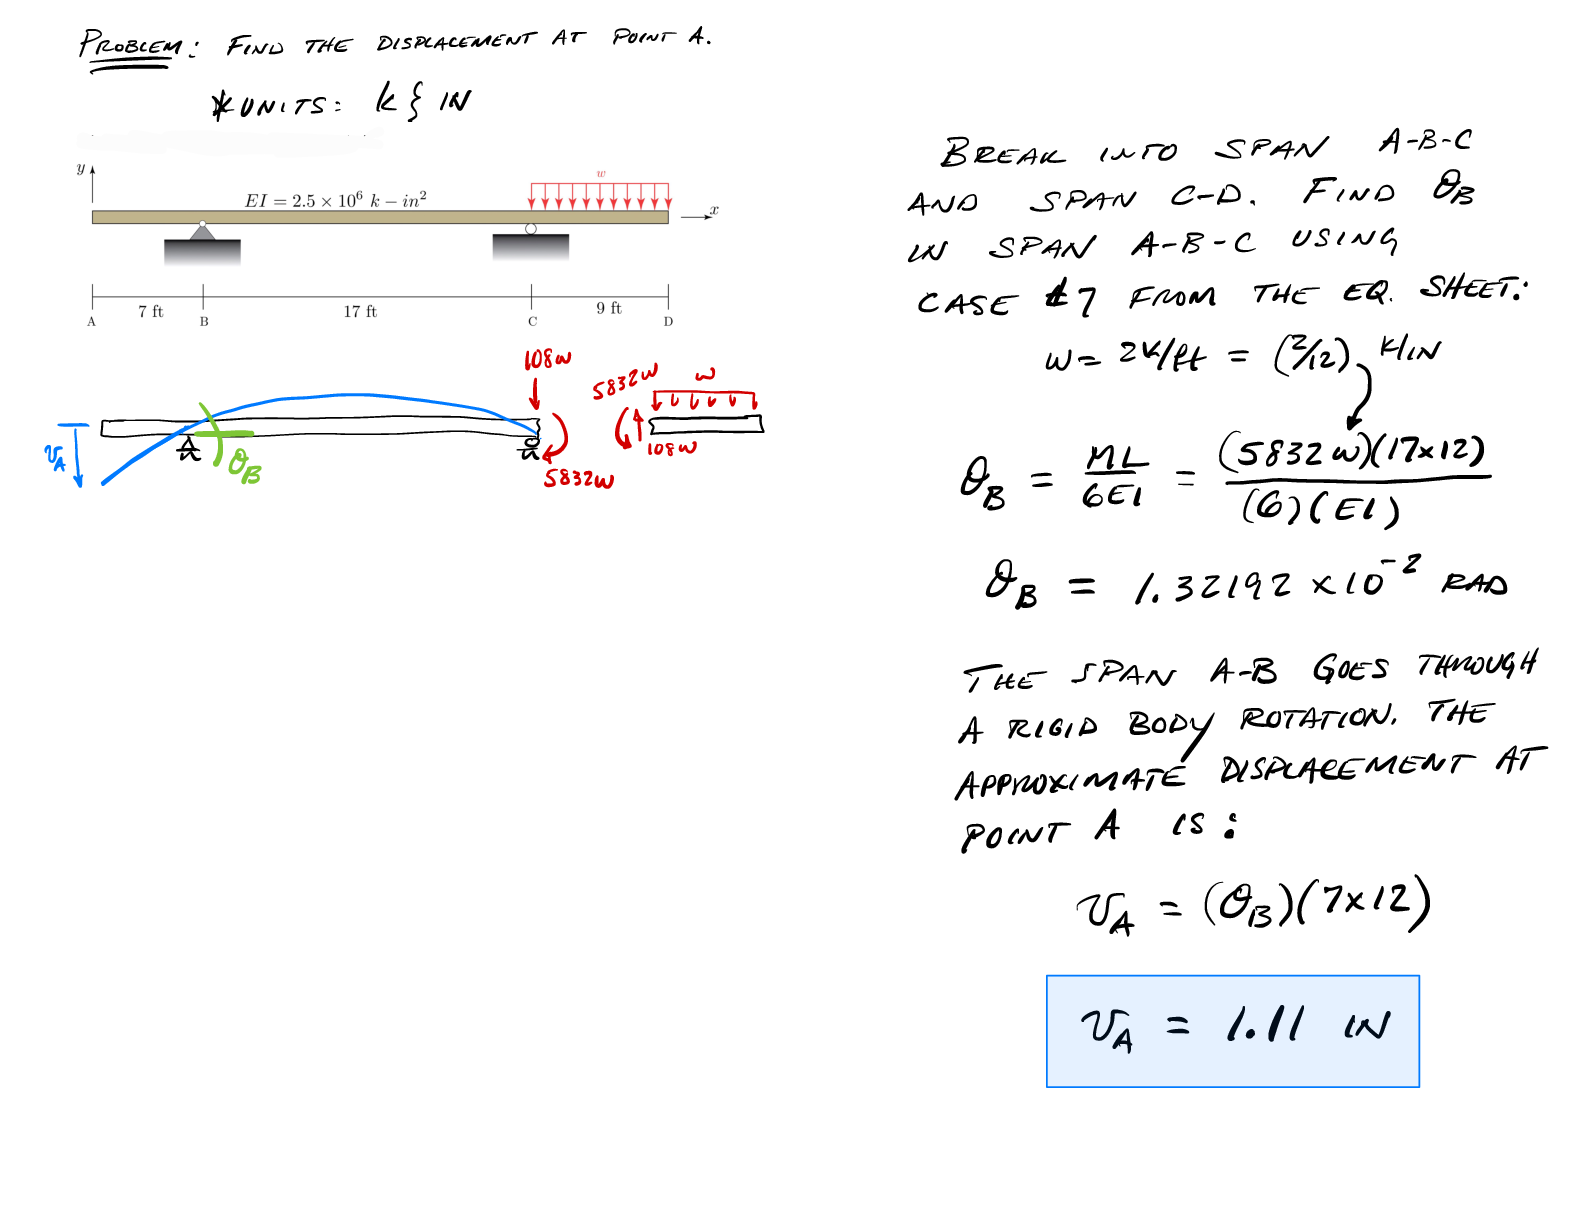 PROBLEM: FIND THE DISPLACEMENT AT POINT A.
*UNITS: k & IN
y
w
EI = 2.5 × 10⁶ k − in²
x
7 ft
17 ft
9 ft
A
B
C
D
108w
5832w
w
v_A
θ_B
5832w
108w
BREAK INTO SPAN A-B-C
AND SPAN C-D. FIND θ_B
IN SPAN A-B-C USING
CASE #7 FROM THE EQ. SHEET:
w = 2k/ft = (2/12) k/IN
θ_B = ML/6EI = (5832w)(17×12)/(6)(EI)
θ_B = 1.32192 × 10⁻² RAD
THE SPAN A-B GOES THROUGH
A RIGID BODY ROTATION. THE
APPROXIMATE DISPLACEMENT AT
POINT A IS:
v_A = (θ_B)(7×12)
v_A = 1.11 IN